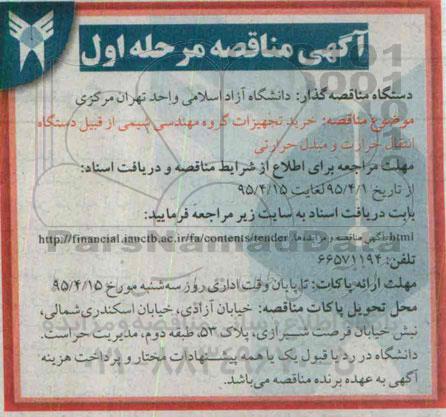 آگهی مناقصه مرحله اول
دستگاه مناقصه گذار: دانشگاه آزاد اسلامی واحد تهران مرکزی
موضوع مناقصه: خرید تجهیزات گروه مهندسی شیمی از قبیل دستگاه
انتقال حرارت و مبدل حرارتی
مهلت مراجعه برای اطلاع از شرایط مناقصه و دریافت اسناد:
از تاریخ ۹۵/۴/۱ لغایت ۹۵/۴/۱۵
بابت دریافت اسناد به سایت زیر مراجعه فرمایید:
http://financial.iauctb.ac.ir/fa/contents/tender/آگهی مناقصه و مزایده‌ها.html
تلفن: ۶۶۵۷۱۱۹۴
مهلت ارائه پاکات: تا پایان وقت اداری روز سه‌شنبه مورخ ۹۵/۴/۱۵
محل تحویل پاکات مناقصه: خیابان آزادی، خیابان اسکندری شمالی،
نبش خیابان فرصت شیرازی، پلاک ۵۳، طبقه دوم، مدیریت حراست.
دانشگاه در رد یا قبول یک یا همه پیشنهادات مختار و پرداخت هزینه
آگهی به عهده برنده مناقصه می‌باشد.